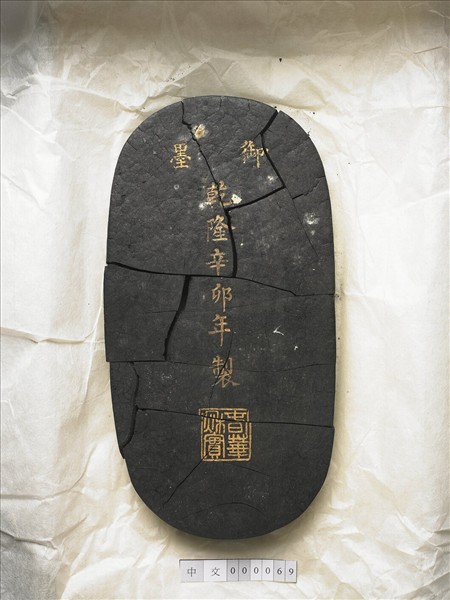 御墨
乾隆辛卯年製
春華秋實
中文000069